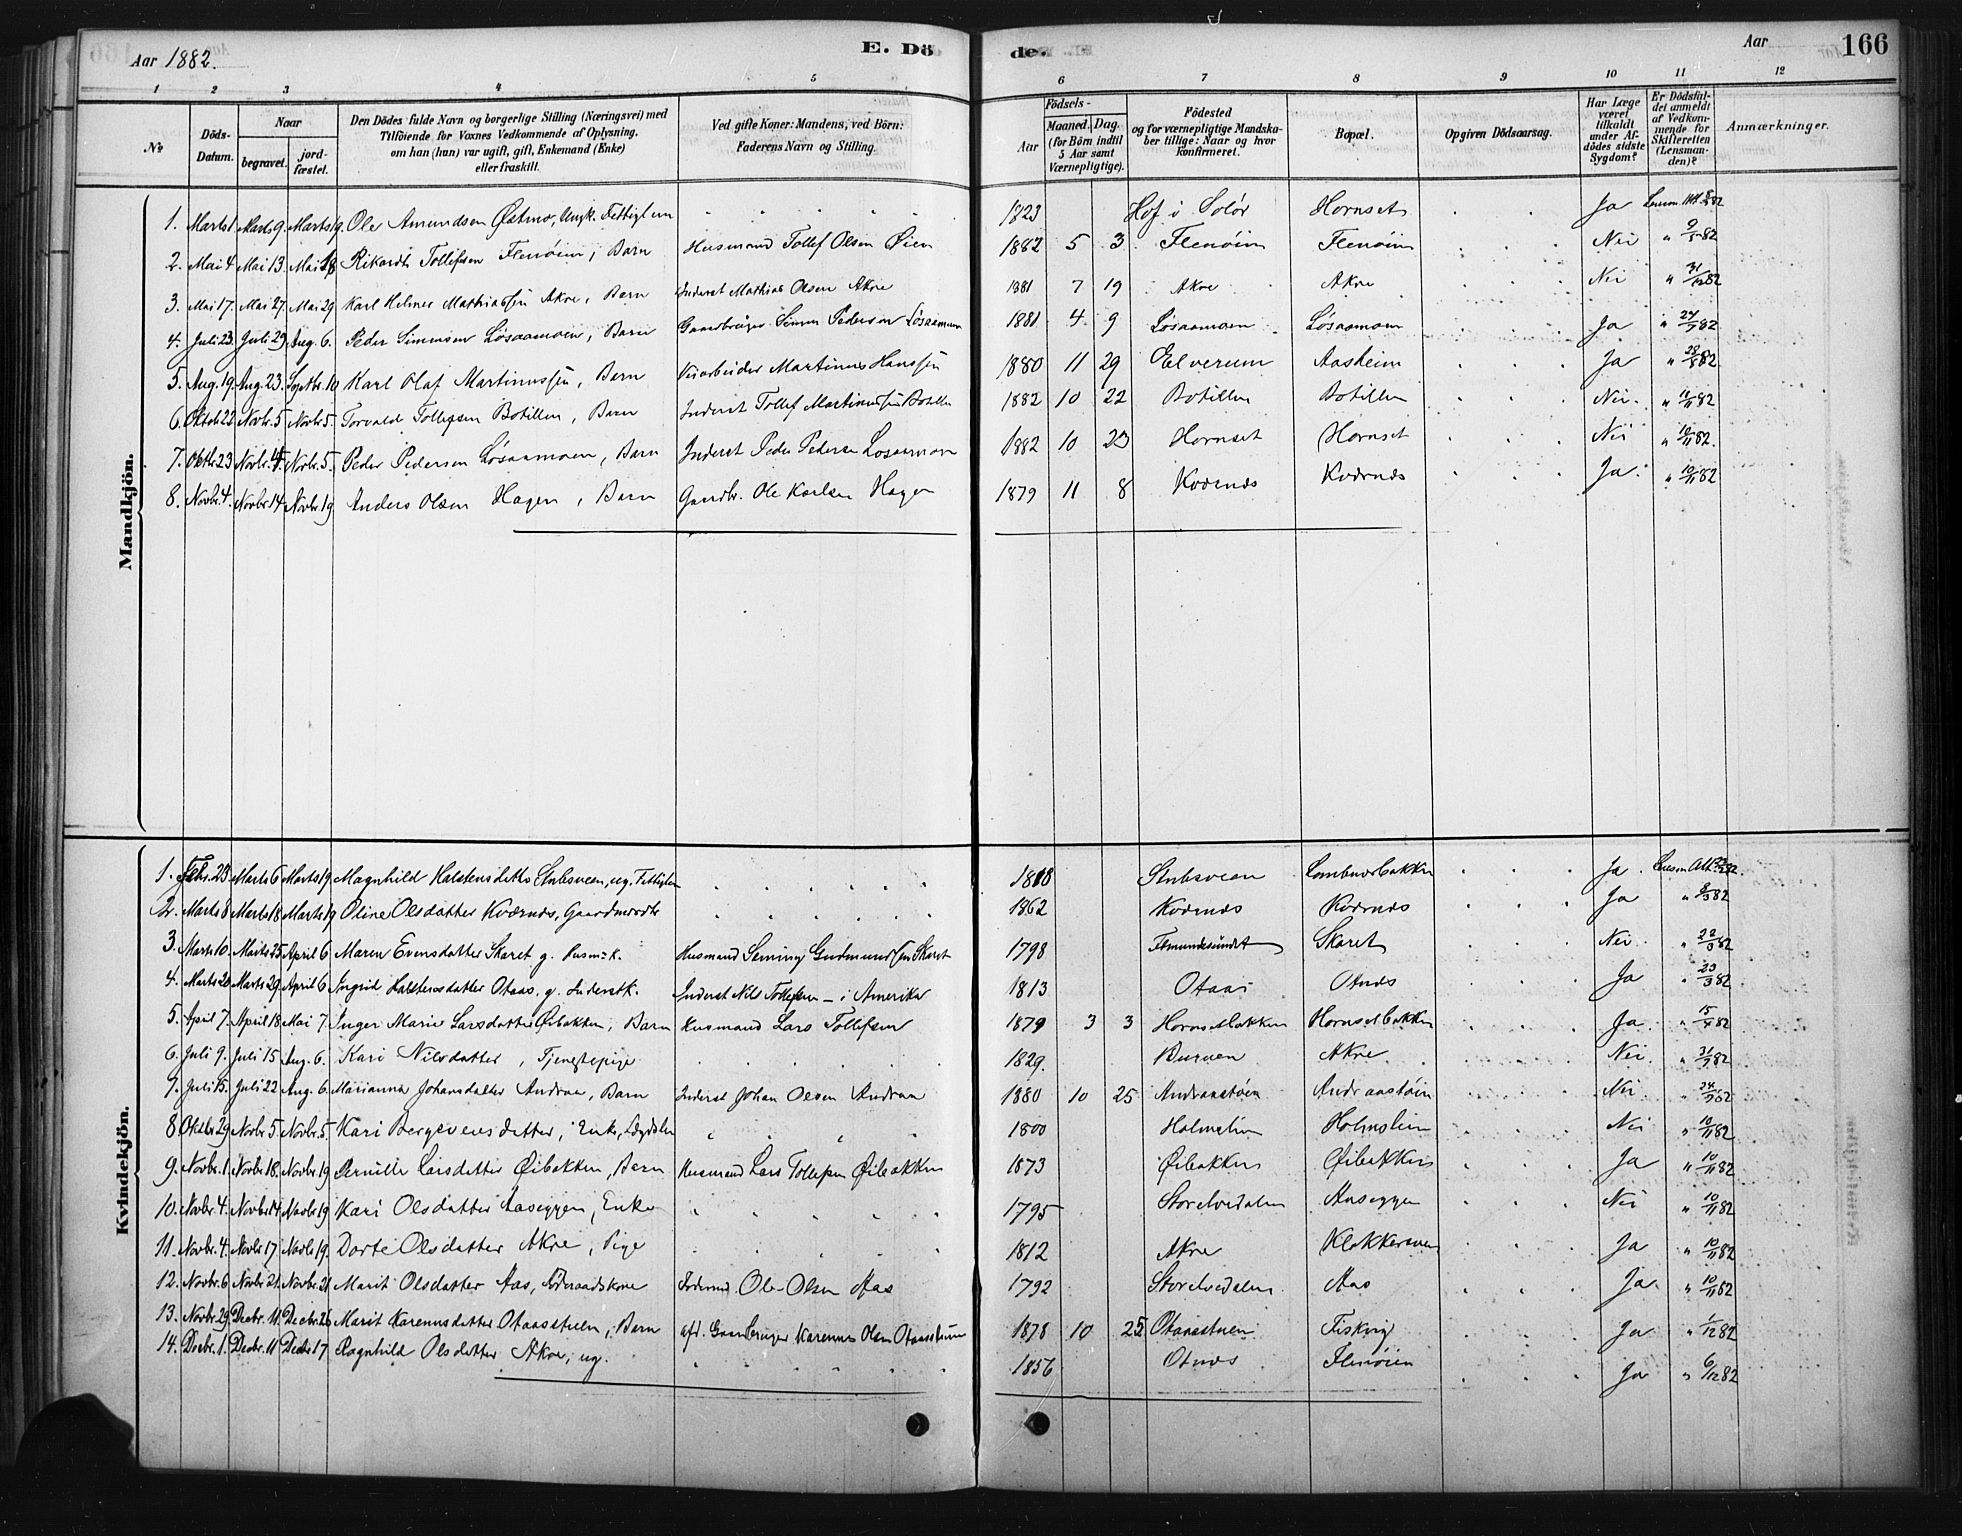 Aar 1882. E. Dö de. Aar 166
1 2 3 4 5 6 7 8 9 10 11 12
No. Döds-Datum. Naar begravet. jord-fæstet. Den Dödes fulde Navn og borgerlige Stilling (Næringsvei) med Tilföiende for Voxnes Vedkommende af Oplysning, om han (hun) var ugift, gift, Enkemand (Enke) eller fraskilt. Ved gifte Koner: Mandens, ved Börn: Faderens Navn og Stilling. Födsels- Aar Maaned. Dag. (for Börn indtil 5 Aar samt Værnepligtige). Födested og for værnepligtige Mandskaber tillige: Naar og hvor konfirmeret. Bopæl. Opgiven Dödsaarsag. Har Læge været tilkaldt under Afdödes sidste Sygdom? Er Dödsfaldet anmeldt af Vedkommende for Skifteretten (Lensmanden)? Anmærkninger.
Mandkjön.
1. Marts 1 Marts 9. Marts 19. Ole Amundsen Østmo, Ungk. Fattiglem " " " " 1823 Hof i Solör Hornset Ja
2. Mai 4 Mai 13. Mai 18 Rikardt Tollefsen Flenöien, Barn Husmand Tollef Olsen Øien 1882 5 3 Flenöien Flenöien Nei " 9/5 82
3. Mai 17. Mai 27. Mai 29 Karl Helmer Mathiassen Akre, Barn Inderst Mathias Olsen Akre 1881 7 19 Akre Akre Nei
4. Juli 23. Juli 29 Aug. 6. Peder Simensen Lösaamoen, Barn Gaardbruger Simen Pedersen Lösaamoen 1881 4 9 Lösaamoen Lösaamoen Ja " 24/7 82
5. Aug. 19. Aug. 23. Septbr. 10 Karl Olaf Martinussen, Barn Veiarbeider Martinus Hanssen 1880 11 29 Elverum Aasheim Ja " 28/8 82
6. Oktob. 22 Novbr. 5 Novbr. 5. Torvald Tollefsen Botillen, Barn Inderst Tollef Martinussen Botillen 1882 10 22 Botillen Botillen Nei. " 11/11 82
7. Oktbr. 23 Novbr. 5 Novbr. 5. Peder Pedersen Lösaamoen, Barn Inderst Peder Pedersen Lösaamoen 1882 10 23 Hornset Hornset Nei " 10/11 82.
8. Novbr. 4. Novbr. 14 Novbr. 19 Anders Olsen Hagen, Barn Gaardbr. Ole Karlsen Hagen 1879 11 8 Kværnæs Kværnæs Ja " 10/11 82
Kvindekjön.
1. Febr. 23 Marts 6 Marts 19 Magnhild Halstensdatter Stubsveen, ug. Fattiglem " " " " 1818 Stubsveen Ja
2. Marts 8 Marts 18 Marts 19 Oline Olsdatter Kværnæs, " " " " 1862 Kværnæs Kværnæs Ja " 9/3 82
3. Marts 10. Marts 25 April 6 Maren Evensdatter Skaret g. Husm.k. Husmand Seming Gudmundsen Skaret 1798 Femundsundet Skaret Nei " 22/3 82
4. Marts 20 Marts 29 April 6 Ingrid Halstensdatter Otaas. g. Inderstk. Inderst Nils Tollefsen - i Amerika 1813 Otaas Otnæs Ja " 23/3 82
5. April 7. April 18 Mai 7. Inger Marie Larsdatter Øibakken, Barn Husmand Lars Tollefsen 1879 3 3 Hornsetbakken Hornsetbakken Ja. " 15/4 82
6. Juli 9. Juli 15 Aug. 6. Kari Nilsdatter, Tjenestepige 1829. Buraen Akre Nei. " 31/7 82
7. Juli 15. Juli 22 Aug. 6. Marianna Johansdatter Andraa, Barn Inderst Johan Olsen Andraa 1880 10 25 Andraastöen Andraastöen Nei " 24/7 82
8. Oktbr. 29 Novbr. 5. Novbr. 5. Kari Bergsvensdatter, Enke, Lægdslem " " " " 1800 Holmslien Holmslien Nei " 10/11 82
9. Novbr. 1. Novbr. 18. Novbr. 19 Pernille Larsdatter Øibakken, Barn Husmand Lars Tollefsen Øibakken 1873 Øibakken Øibakken Ja " 10/11 82
10. Novbr. 4. Novbr. 14. Novbr. 19 Kari Olsdatter Aaseggen, Enke " " " " 1795 Storelvedalen Aaseggen Nei " 10/11 82
11. Novbr. 4. Novbr. 17 Novbr. 19. Dorte Olsdatter Akre, Pige " " " " 1812 Akre Klokkersveen Ja " 10/11 82
12. Novbr. 6 Novbr. 21. Novbr. 21 Marit Olsdatter Aas, Föderaadskone Ole Olsen Aas 1792 Storelvedalen. Aas Ja " 10/11 82
13. Novbr. 29. Decbr. 11. Decbr. 26 Marit Karenusdatter Otaasstuen, Barn afd. Gaardbruger Karenus Olsen Otaasstuen 1878 10 25 Otaasstuen Fiskvig Ja " 1/12 82
14. Decbr. 1. Decbr. 11 Decbr. 17 Ragnhild Olsdatter Akre, ug. " " " " 1856 Otnæs Flenöien Ja " 6/12 82